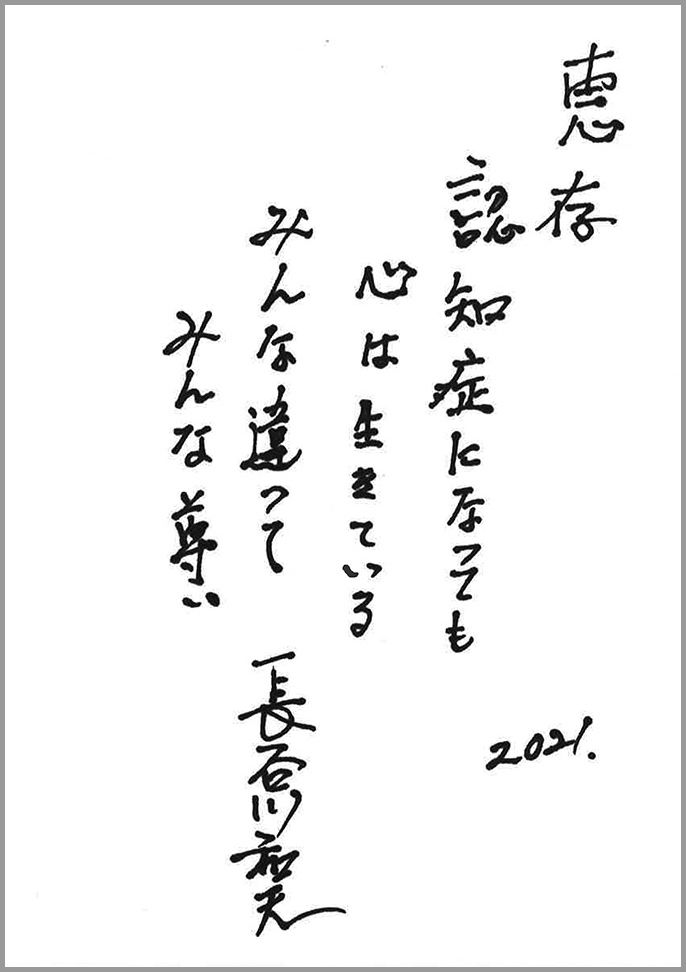 恵存
認知症になっても
心は生きている
みんな違って
みんな尊い
2021.
長谷川和夫